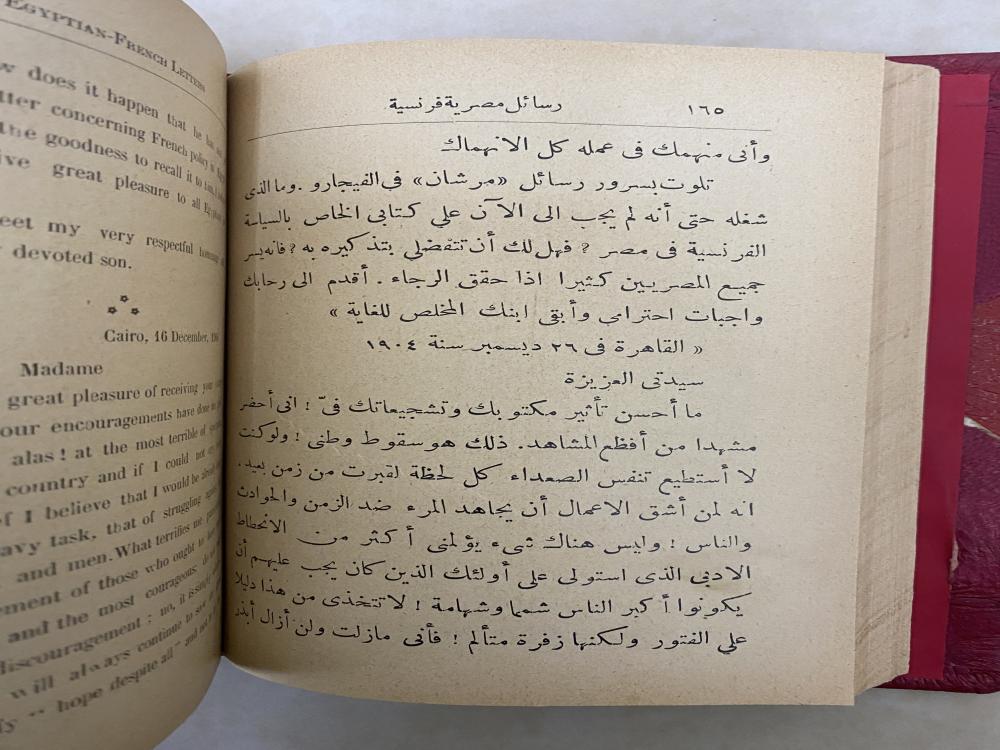 EGYPTIAN-FRENCH LETTERS
does it happen that he has
tter concerning French policy
the goodness to recall it to
ive great pleasure to all
eet my very respectful
devoted son.
Cairo, 16 December,
Madame
great pleasure of receiving
our encouragements have done
alas! at the most terrible of
country and if I could not
f I believe that I would be
avy task, that of struggling
and men. What terrifies me
ement of those who ought to
and the most courageous:
discouragement: no, it is
will always continue to
hope despite all"
رسائل مصرية فرنسية ١٦٥
وأنى منهمك فى عمله كل الانهماك
تلوت بسرور رسائل «مرشان» في الفيجارو. وما الذى
شغله حتى أنه لم يجب الى الآن علي كتابي الخاص بالسياسة
الفرنسية فى مصر ? فهل لك أن تتفضلي بتذكيره به ? فانه يسر
جميع المصريين كثيرا اذا حقق الرجاء. أقدم الى رحابك
واجبات احترامى وأبقى ابنك المخلص للغاية »
« القاهرة فى ٢٦ ديسمبر سنة ١٩٠٤
سيدتى العزيزة
ما أحسن تأثير مكتوبك وتشجيعاتك فىّ ! انى أحضر
مشهدا من أفظع المشاهد. ذلك هو سقوط وطنى ! ولو كنت
لا أستطيع تنفس الصعداء كل لحظة لقبرت من زمن بعيد.
انه لمن أشق الاعمال أن يجاهد المرء ضد الزمن والحوادث
والناس ! وليس هناك شىء يؤلمنى أكثر من الانحطاط
الادبى الذى استولى على أولئك الذين كان يجب عليهم أن
يكونوا أكبر الناس شمما وشهامة ! لا تتخذى من هذا دليلا
علي الفتور ولكنها زفرة متألم ! فأنى مازلت ولن أزال أبذر